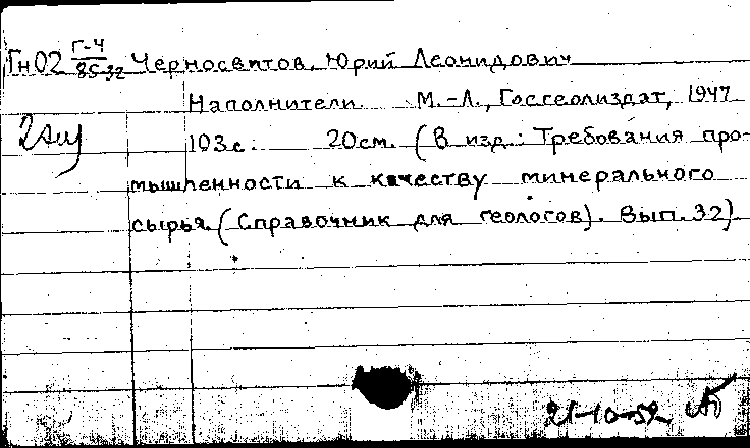 Гн02 Г-4/85-32 Черносвитов, Юрий Леонидович
Наполнители М.-Л., Госгеолиздат, 1947
103с. 20см. (В изд.: Требования про-
мышленности к качеству минерального
сырья. (Справочник для геологов). Вып. 32)
21-10-52